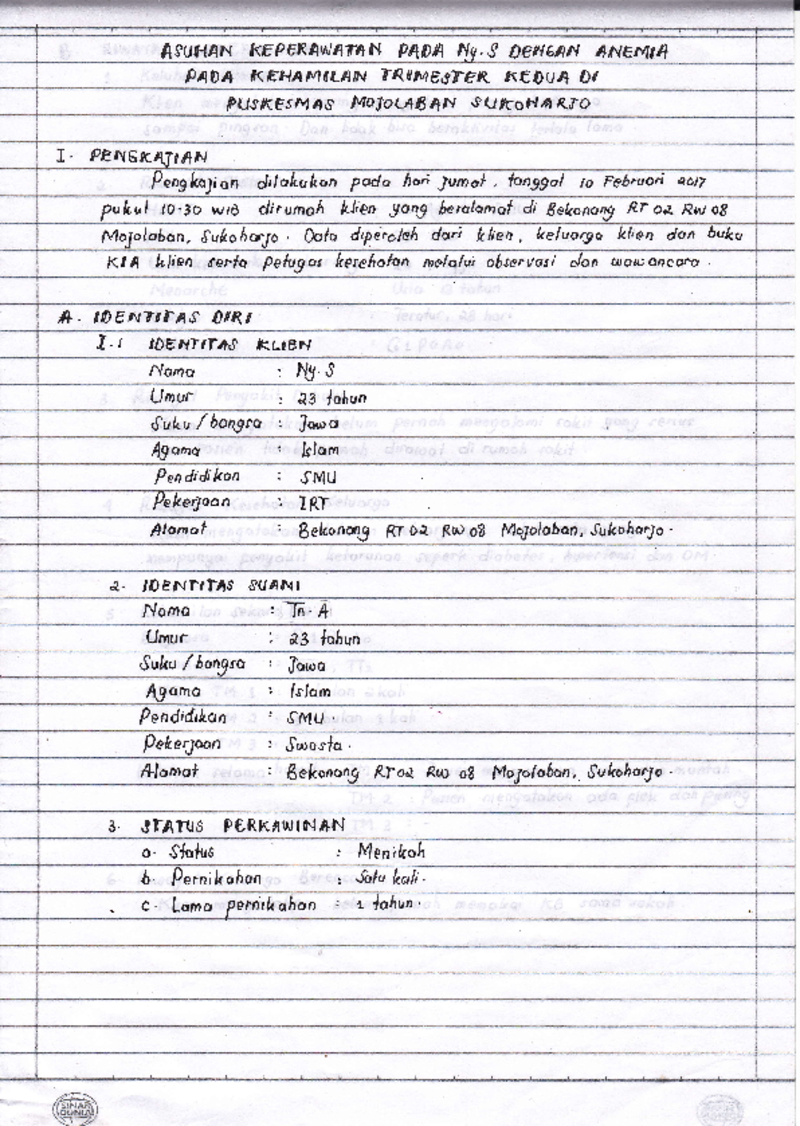 ASUHAN KEPERAWATAN PADA Ny. S DENGAN ANEMIA
PADA KEHAMILAN TRIMESTER KEDUA DI
PUSKESMAS MOJOLABAN SUKOHARJO
I. PENGKAJIAN
Pengkajian dilakukan pada hari Jumat, tanggal 10 Februari 2017
pukul 10.30 WIB dirumah klien yang beralamat di Bekonang RT 02 RW 08
Mojolaban, Sukoharjo. Data diperoleh dari klien, keluarga klien dan buku
KIA klien serta petugas kesehatan melalui observasi dan wawancara.
A. IDENTITAS DIRI
I.1 IDENTITAS KLIEN
Nama : Ny. S
Umur : 23 tahun
Suku / bangsa : Jawa
Agama : Islam
Pendidikan : SMU
Pekerjaan : IRT
Alamat : Bekonang RT 02 RW 08 Mojolaban, Sukoharjo.
2. IDENTITAS SUAMI
Nama : Tn. A
Umur : 23 tahun
Suku / bangsa : Jawa
Agama : Islam
Pendidikan : SMU.
Pekerjaan : Swasta.
Alamat : Bekonang RT 02 RW 08 Mojolaban, Sukoharjo.
3. STATUS PERKAWINAN
a. Status : Menikah
b. Pernikahan : Satu kali.
c. Lama pernikahan : 1 tahun.
SINAR
DUNIA